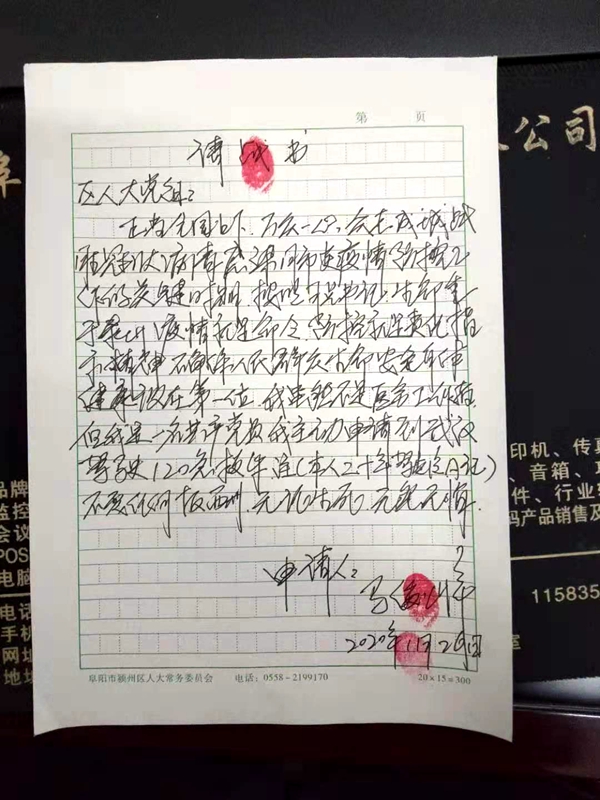 第 页
请战书
区人大党组：
正当全国上下、万众一心、众志成城战
胜 疫情防控工
作的关键时期，按照习总书记 生命重
于泰山 疫情就是命令 防控就是责任指
示精神 人民群众生命安全身体
健康放在第一位，我虽然不是医务工作者
但我是一名共产党员我主动申请到武汉
驾驶120急救车 (本人二十年驾龄A证)
不要任何报酬 无论生死 无怨无悔.
申请人：
马
2020年1月2 日
阜阳市颍州区人大常务委员会 电话：0558－2199170 20×15＝300
公司
印机、传真
、音箱、
件、行业
码产品销售及
115835
室
品牌
监控
会议
POS
电脑
电话
手机
网址
地址